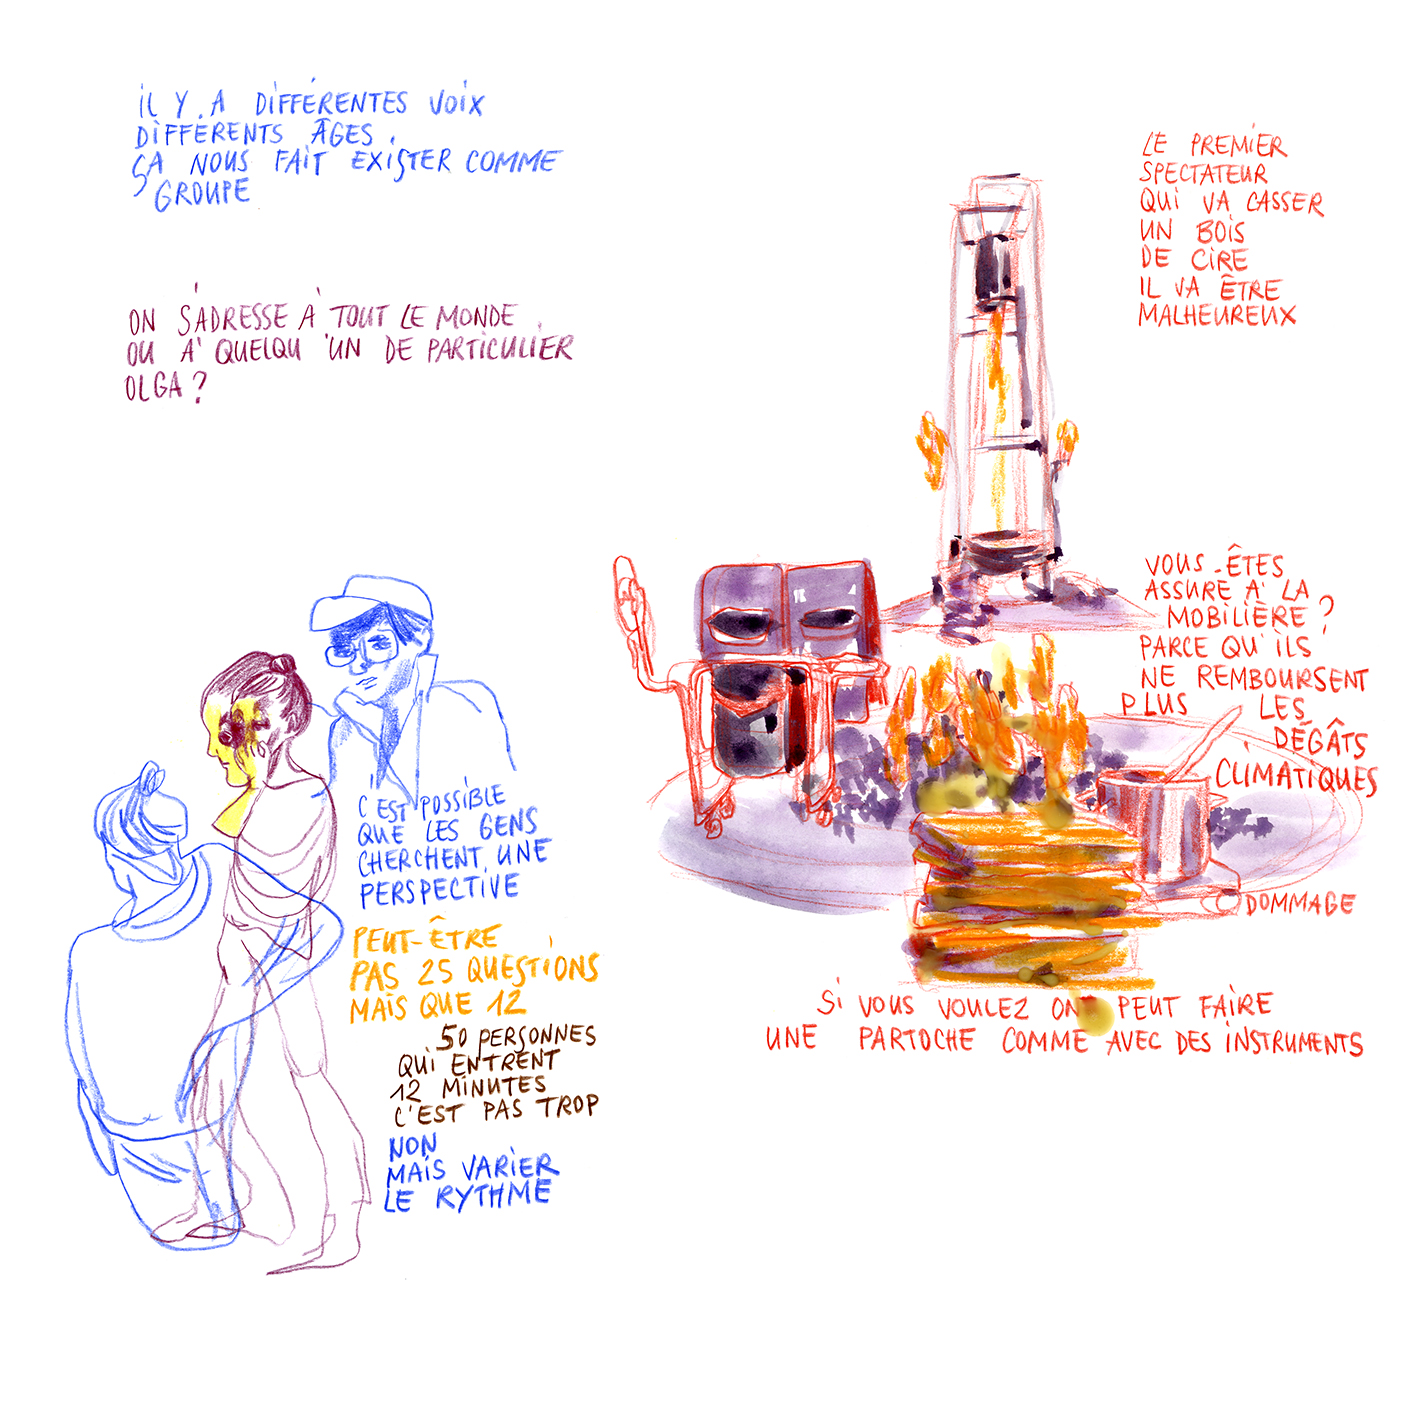 IL Y A DIFFÉRENTES VOIX
DIFFÉRENTS ÂGES
ÇA NOUS FAIT EXISTER COMME
GROUPE
ON S'ADRESSE À TOUT LE MONDE
OU À QUELQU'UN DE PARTICULIER
OLGA ?
C'EST POSSIBLE
QUE LES GENS
CHERCHENT UNE
PERSPECTIVE
PEUT-ÊTRE
PAS 25 QUESTIONS
MAIS QUE 12
50 PERSONNES
QUI ENTRENT
12 MINUTES
C'EST PAS TROP
NON
MAIS VARIER
LE RYTHME
LE PREMIER
SPECTATEUR
QUI VA CASSER
UN BOIS
DE CIRE
IL VA ÊTRE
MALHEUREUX
VOUS-ÊTES
ASSURÉ À LA
MOBILIÈRE ?
PARCE QU'ILS
NE REMBOURSENT
PLUS LES
DÉGÂTS
CLIMATIQUES
DOMMAGE
SI VOUS VOULEZ ON PEUT FAIRE
UNE PARTOCHE COMME AVEC DES INSTRUMENTS